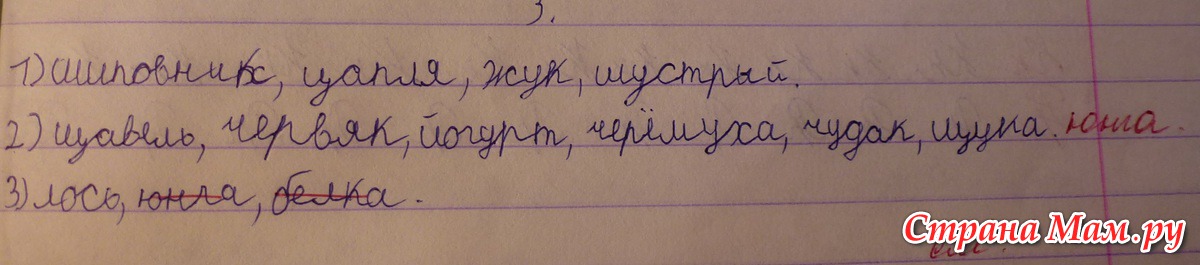 3.
1) шиповник, цапля, жук, шустрый.
2) щавель, червяк, йогурт, черёмуха, чудак, щука. юнга.
3) лось, юнга, белка.
Страна Мам.ру